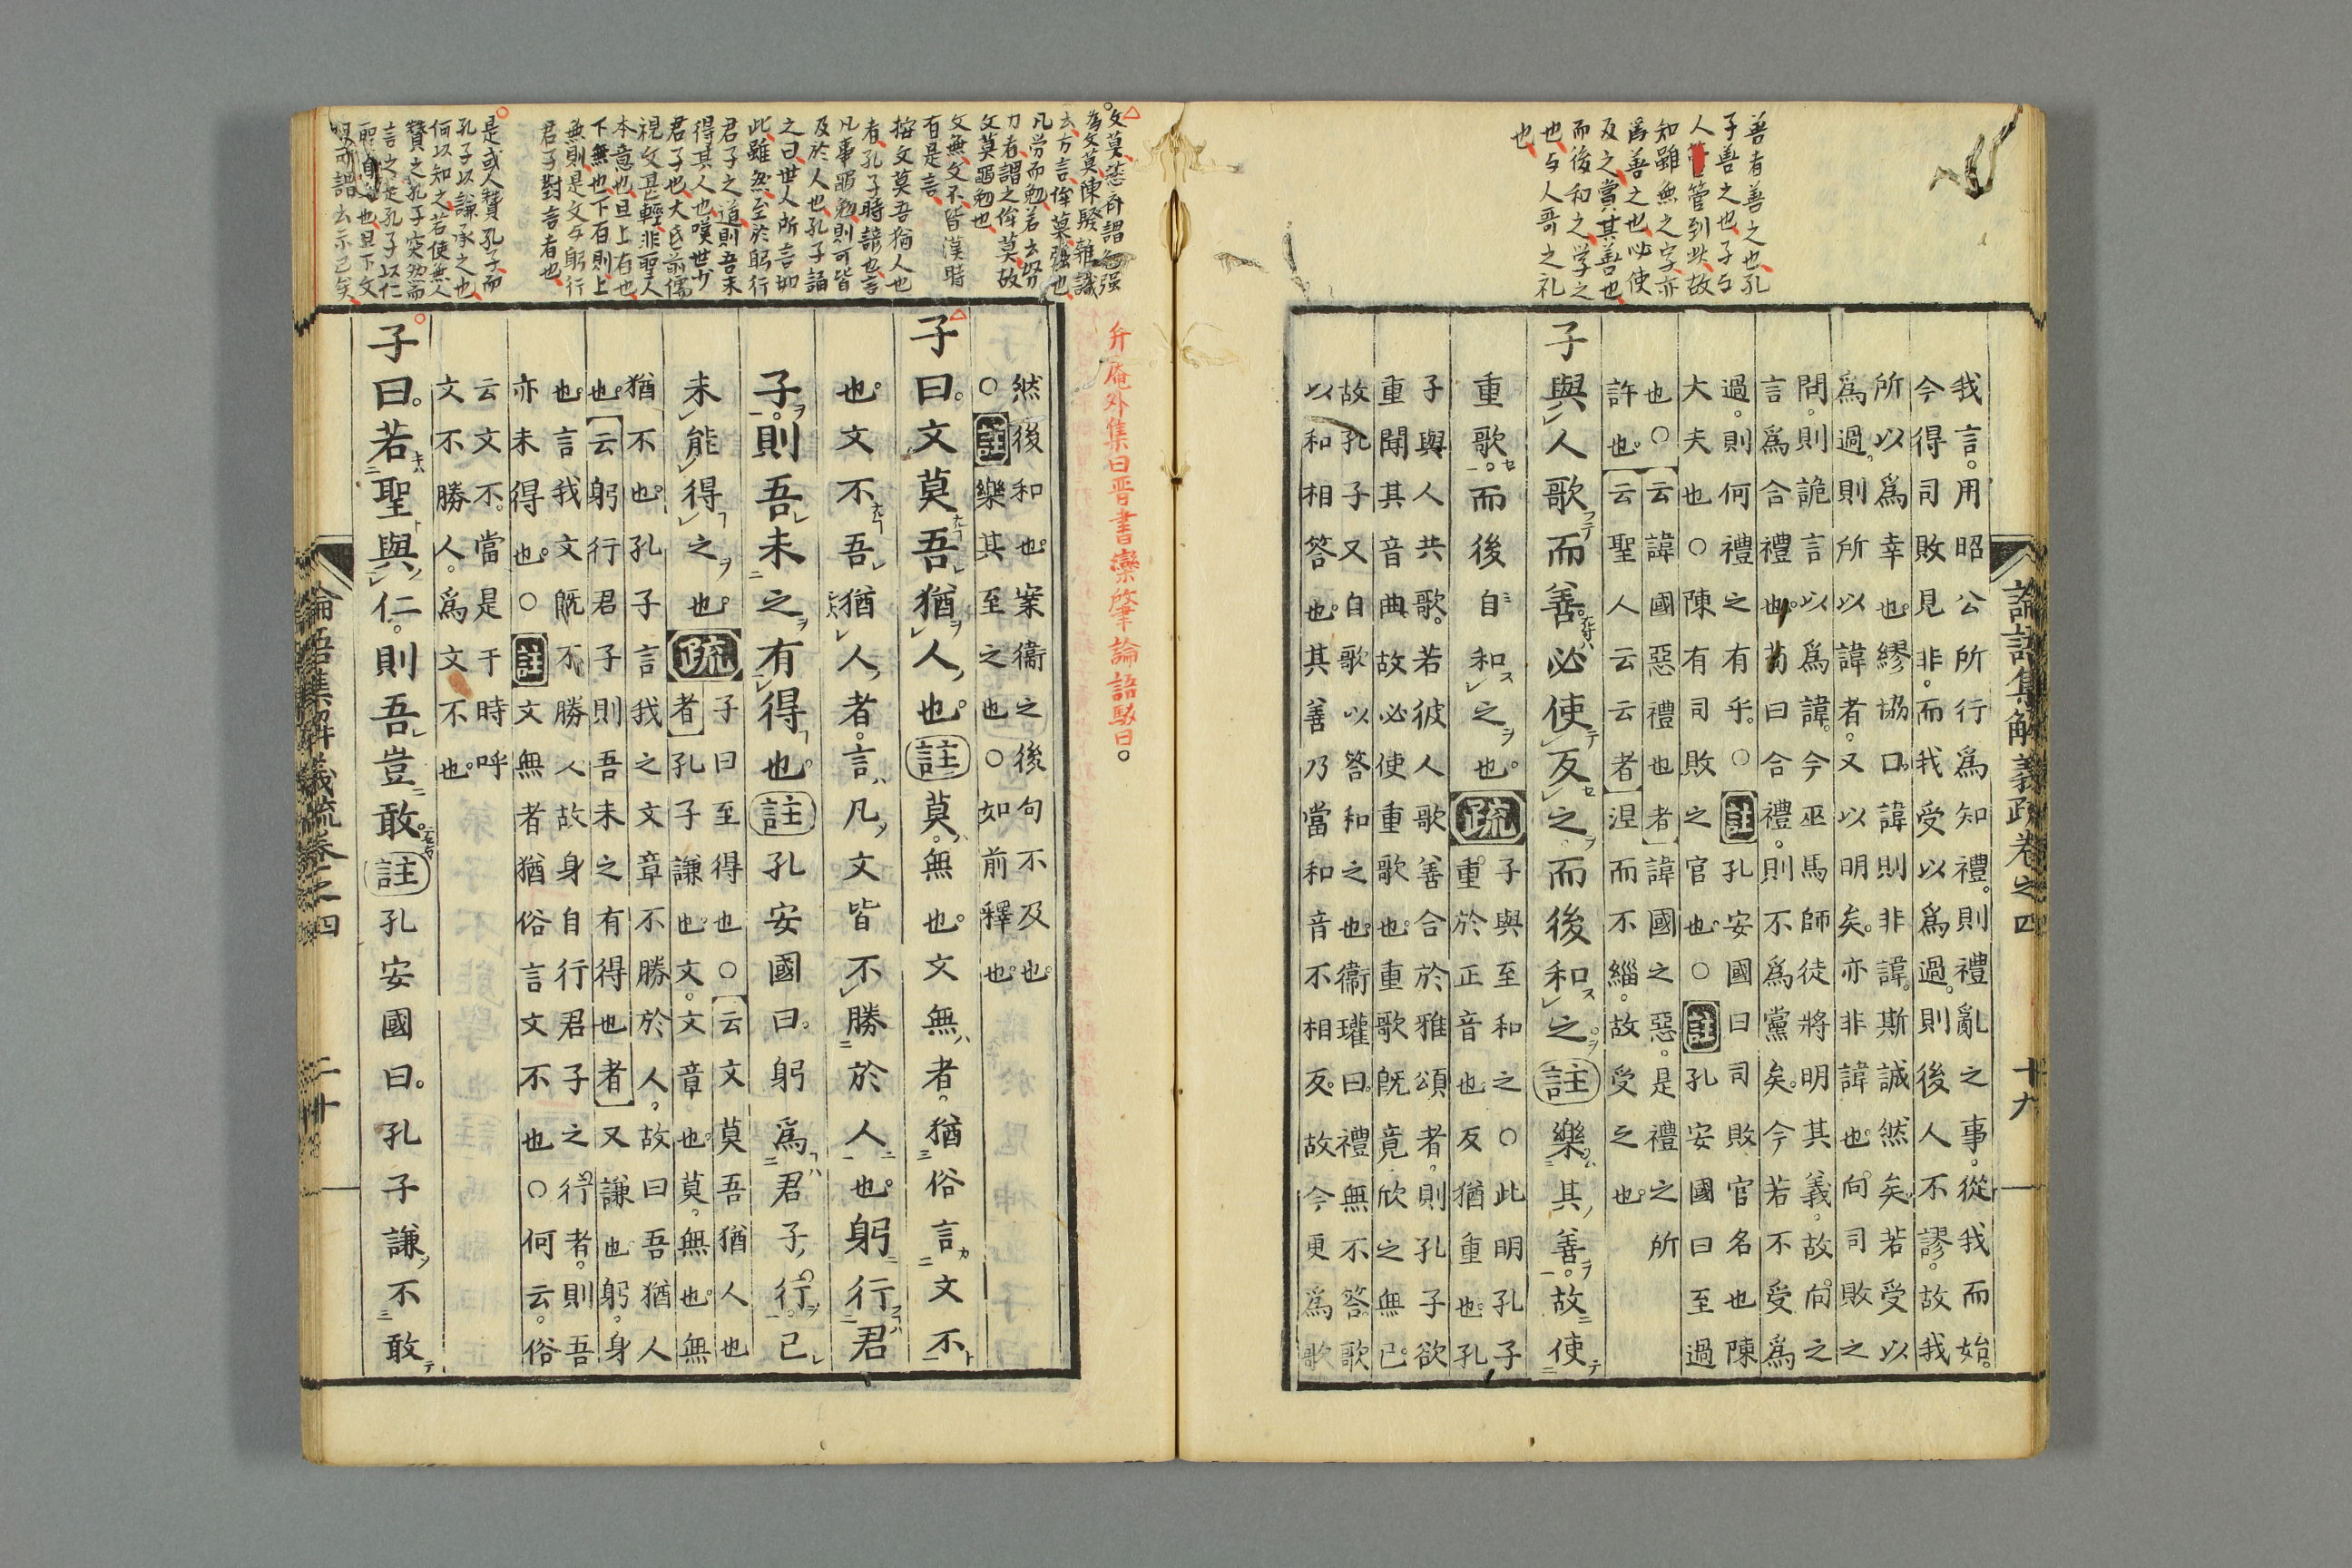 善者善之也孔
子善之也子与
人管到此故
知雖無之字亦
為善之也必使
反之賞其善也
而後和之学之
也与人哥之礼
也
我言。用昭公所行為知禮。則禮亂之事。從我而始。
今得司敗見非。而我受以為過。則後人不謬。故我
所以為幸也。繆協口。諱則非諱。斯誠然矣。若受以
為過。則所以諱者。又以明矣。亦非諱也。向司敗之
問。則詭言以為諱。今巫馬師徒將明其義。故向之
言為合禮也。苟曰合禮。則不為黨矣。今若不受為
過。則何禮之有乎。○註孔安國曰司敗官名也陳
大夫也○陳有司敗之官也。○註孔安國曰至過
也○云諱國惡禮也者諱國之惡。是禮之所
許也。云聖人云云者涅而不緇。故受之也。
子與人歌而善。必使反之而後和之。註樂其善。故使
重歌。而後自和之也。疏子與至和之○此明孔子
重於正音也反猶重也。孔
子與人共歌。若彼人歌善合於雅頌者。則孔子欲
重聞其音曲故必使重歌也。重歌既竟欣之無已。
故孔子又自歌以答和之也。衞瓘曰。禮無不答歌
以和相答也。其善乃當和音不相反。故今更為歌
論語集解義疏卷之四
十九
弁庵外集曰晋書欒肇論語駁曰。
文莫陳騤雜識
去方言侔莫強也
凡労而勉若云努
力者謂之侔莫故
文莫黽勉也
文無文不皆漢時
有是言
按文莫吾猶人也
者孔子時諺也言
凡事黽勉則可皆
及於人也孔子誦
之曰世人所言如
此雖然至於躬行
君子之道則吾未
得其人也嘆世少
君子也大氐前儒
視文甚輕非聖人
本意也且上有也
下無也下有則上
無則是文与躬行
君子對言者也
是或人賛孔子而
孔子以謙承之也
何以知之若使無人
賛之孔子突然而
言之是孔子以仁
聖自也且下文
然後和也。案衞之後句不及也。
○註樂其至之也○如前釋也。
子曰。文莫吾猶人也。註莫無也。文無者。猶俗言文不
也。文不吾猶人者。言凡文皆不勝於人也。躬行君
子。則吾未之有得也。註孔安國曰。躬為君子。行。已
未能得之也。疏子曰至得也○云文莫吾猶人也
者孔子謙也。文。文章也。莫。無也。無
猶不也。孔子言我之文章不勝於人。故曰吾猶人
也。云躬行君子則吾未之有得也者又謙也躬。身
也。言我文既不勝人。故身自行君子之行者。則吾
亦未得也。○註文無者猶俗言文不也○何云。俗
云文不。當是于時呼
文不勝人。為文不也。
子曰。若聖與仁。則吾豈敢。註孔安國曰。孔子謙。不敢
論語集解義疏卷之四
二十